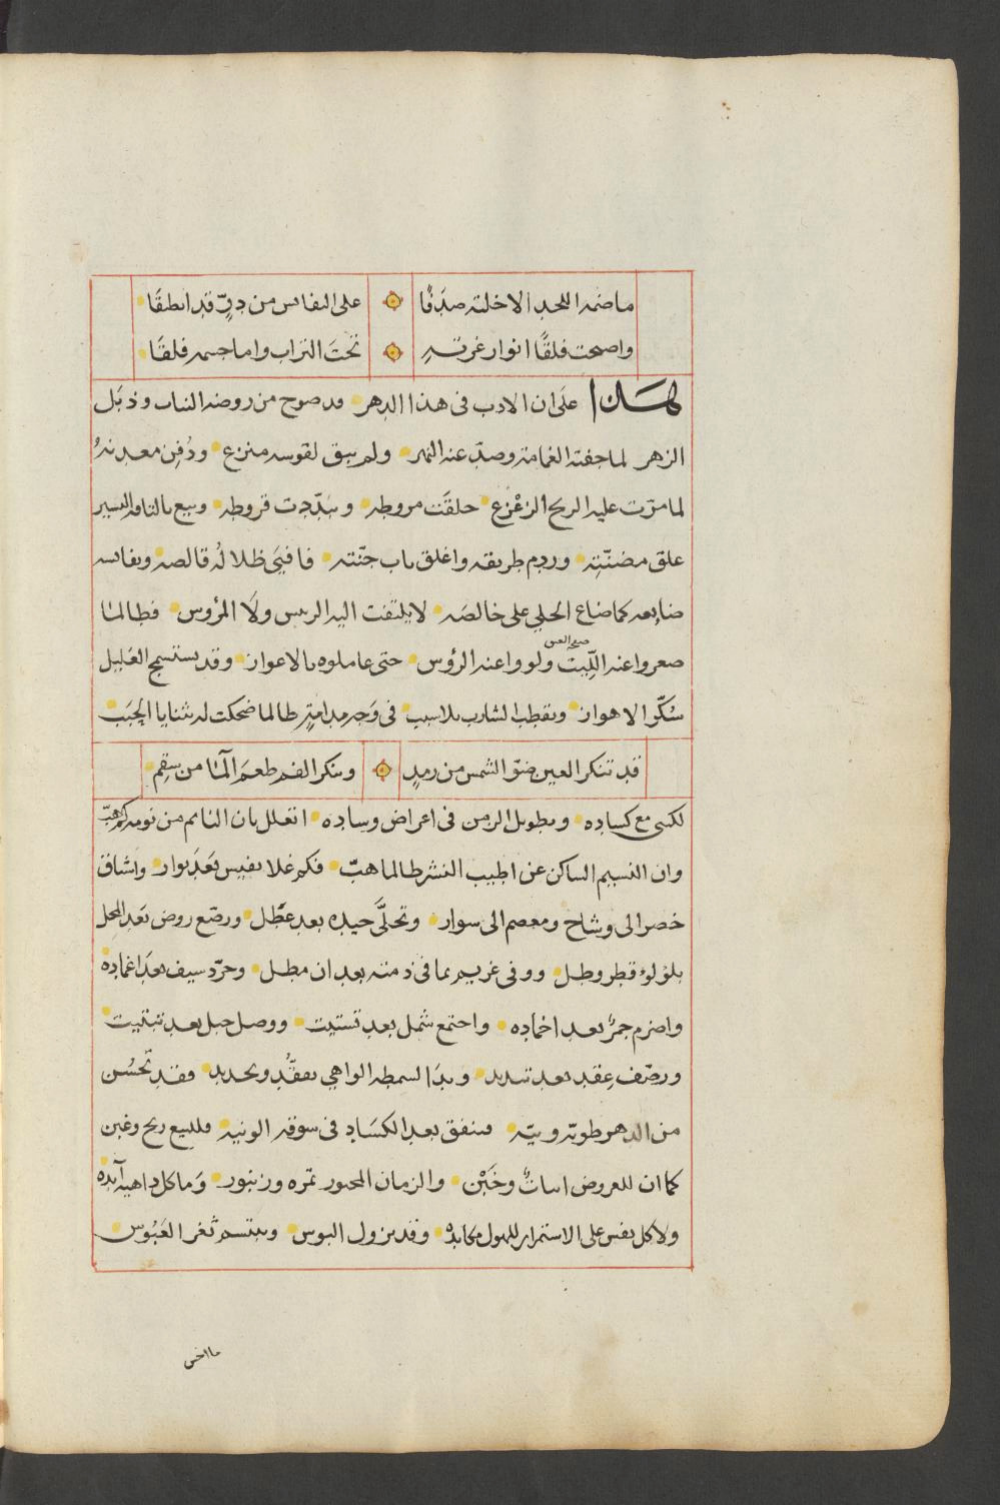 ما ضمه اللحد الا خلته صدفا على النفائس من درّ قد انطبقا
واصبحت فلقًا انوار غرته تحتَ التراب واما جسمه فلقَا
هَذا علَى ان الادب فى هذا الدهر قد صوح من روضه النبات وذبَل
الزهر لما جفته الغمامة وصدّ عنه النهر ولم يبق لقوسه منزع ودُفِن معدنهُ
لما مرّت عليه الريح الزعْزع خلقَت مروطه وتبدّدت قروطه وبيع بالتافه اليسير
علق مضنّتِه وردم طريقه واغلق باب جنّته فافيَى ظلالُه قالصه ونفائسه
ضايعه كما ضاع الحلي على خالصَه لا يلتفت اليه الرئيس ولَا المرؤس فطالما
صعروا عنه اللِّيتَ ولووا عنه الرؤس حتى عاملوه بالاعواز وقد يستسمج العَليل
سُكّر الاهواز ويقطب الشارب بلا سبب فى وَجه مدامةٍ طالما ضحكت له بثنايا الحَبَب
قد تنكر العين ضوّ الشمس من رمدٍ وينكر الفم طعمَ الْمَا من سقم
لكنى مع كساده وتطويل الزمن فى اعراض وساده اتعلل بان النائم من نومه كم هبّ
وان النسيم الساكن عن اطيب النشر طالما هبّ فكم غلا نفيس بَعدَ بوار واشتاق
خصر الى وشاح ومعصم الى سوار وتحلَّى جيده بعد عطَّل ورصّع روض بَعد المحل
بلؤلؤ قطر وطل ووفى غريم بما فى ذمته بعد ان مطل وجرّد سيف بعدَ اغماده
واضرم جمرٌ بعد اخماده واجتمع شمل بعد تشتيت ووصل حبل بعد تبتيت
ورصّف عِقد بعد تبديد وبدَا لسمطه الواهي تفقُّد وتجديد فقد تحسُن
من الدهر طويّه ونيّه فينفق بعد الكسَاد فى سوقه الونيه فللبيع ربح وغبن
كما ان للعروض اسباتٌ وخَبْن والزمان تمره وزنبور وَما كل داهيه آبده
ولا كل نفس على الاستمرار للهول مكابده وقد يزول البوس ويبتسم ثغر العَبُوس